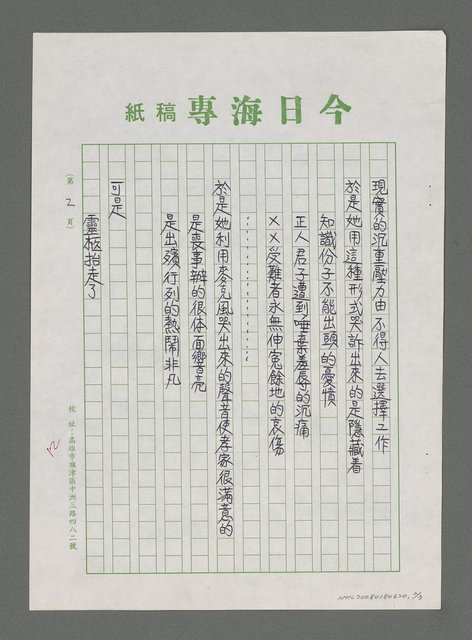 今日海專稿紙
現實的沉重壓力由不得人去選擇工作
於是她用這種形式哭訴出來的是隱藏着
知識份子不能出頭的憂憤
正人君子遭到唾棄羞辱的沉痛
××受難者永無伸冤餘地的哀傷
…………………
於是她利用麥克風哭出來的聲音使孝家很滿意的
是喪事辦的很体面響亮
是出殯行列的熱鬧非凡
可是
靈柩抬走了
(第2頁)
校址:高雄市旗津區中洲三路四八二號
12
NMTL20080180620,2/3